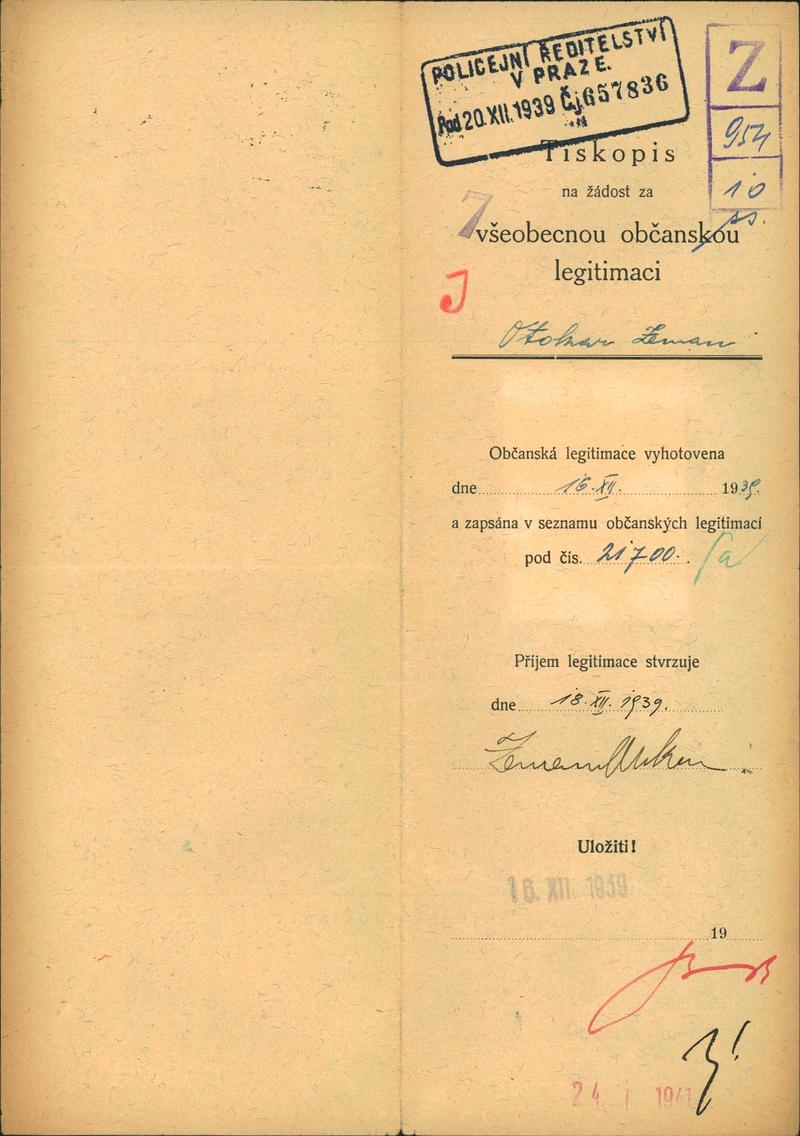 POLICEJNÍ ŘEDITELSTVÍ
V PRAZE.
Pod 20.XII.1939 Čj. 657836
Z
954
10
ss.
Tiskopis
na žádost za
7
všeobecnou občanskou
legitimaci
J
Otokar Zeman
Občanská legitimace vyhotovena
dne 16. XII. 1939.
a zapsána v seznamu občanských legitimací
pod čís. 21700.
Příjem legitimace stvrzuje
dne 18. XII. 1939.
Zeman Otokar
Uložiti!
16. XII. 1939
19
24. I 1941